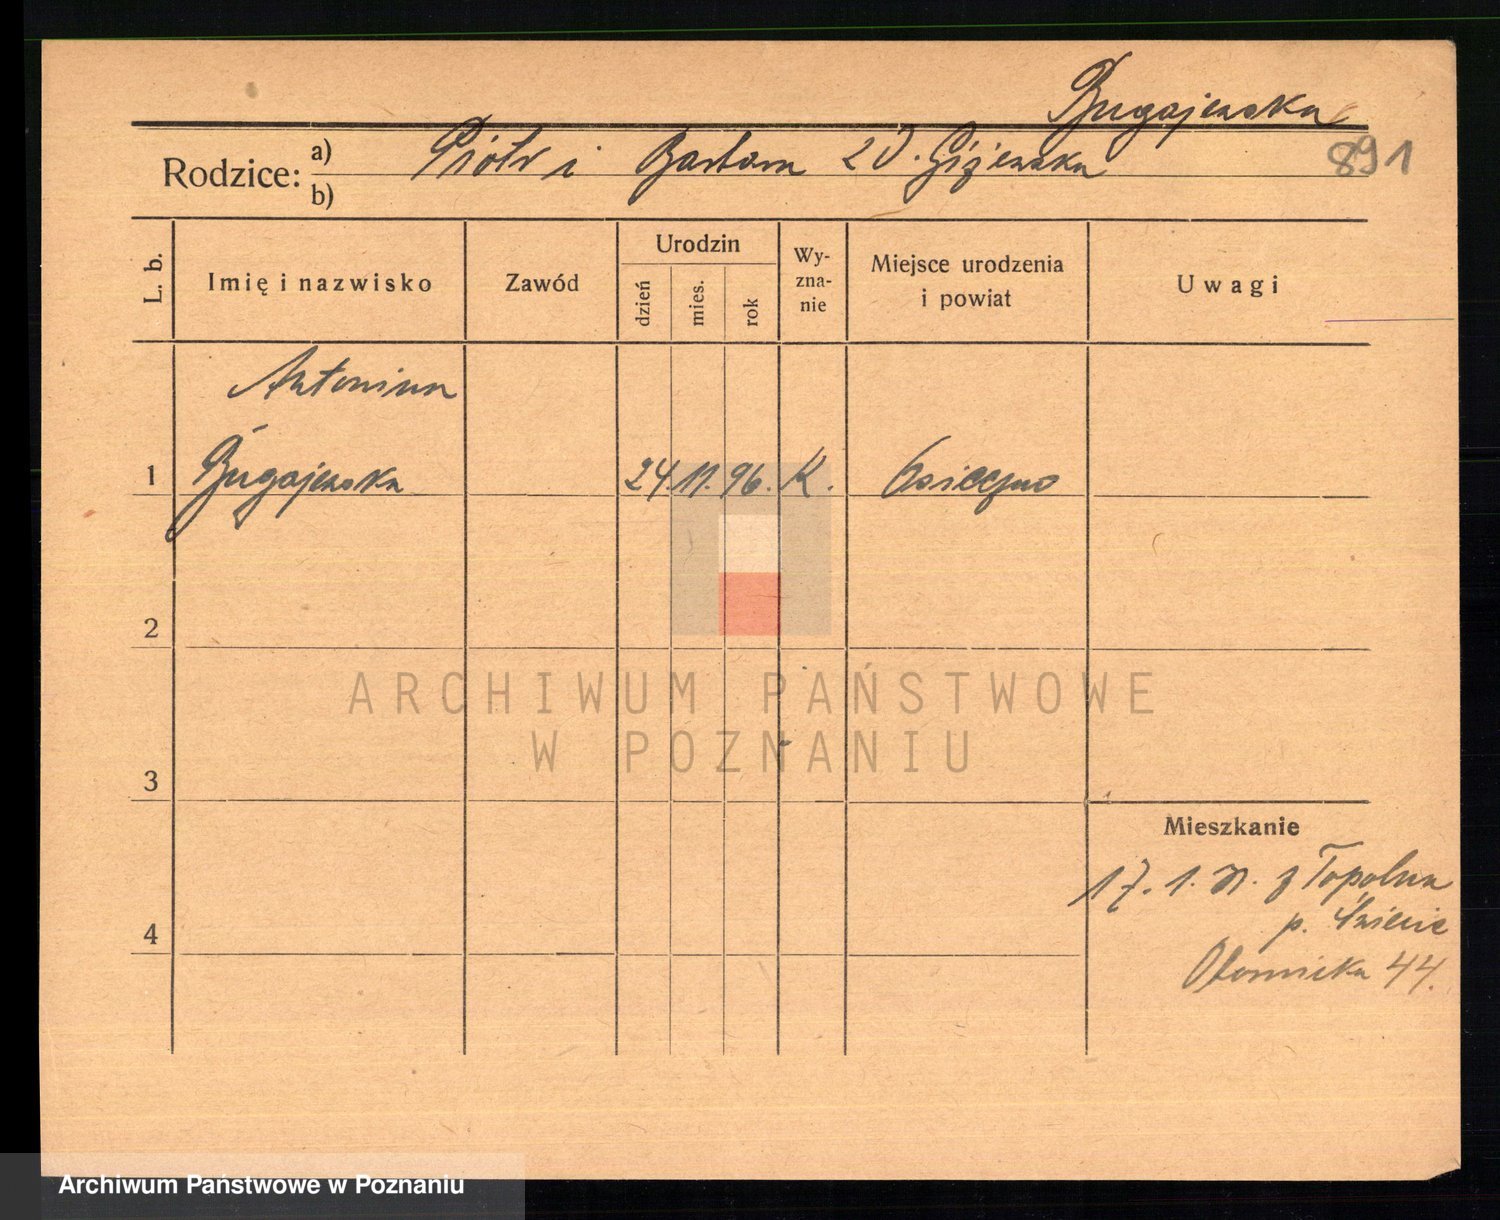 Bugajewska
891
Rodzice: a) Piotr i Barbara z d. Giżewska
b)
L. b. Imię i nazwisko Zawód Urodzin dzień mies. rok Wy-zna-nie Miejsce urodzenia i powiat Uwagi
Antonina
1 Bugajewska 24. 11. 96. K. Osieczno
2
ARCHIWUM PAŃSTWOWE
W POZNANIU
3
Mieszkanie
17. 1. z Topolna
p. Świecie
4
44.
Archiwum Państwowe w Poznaniu